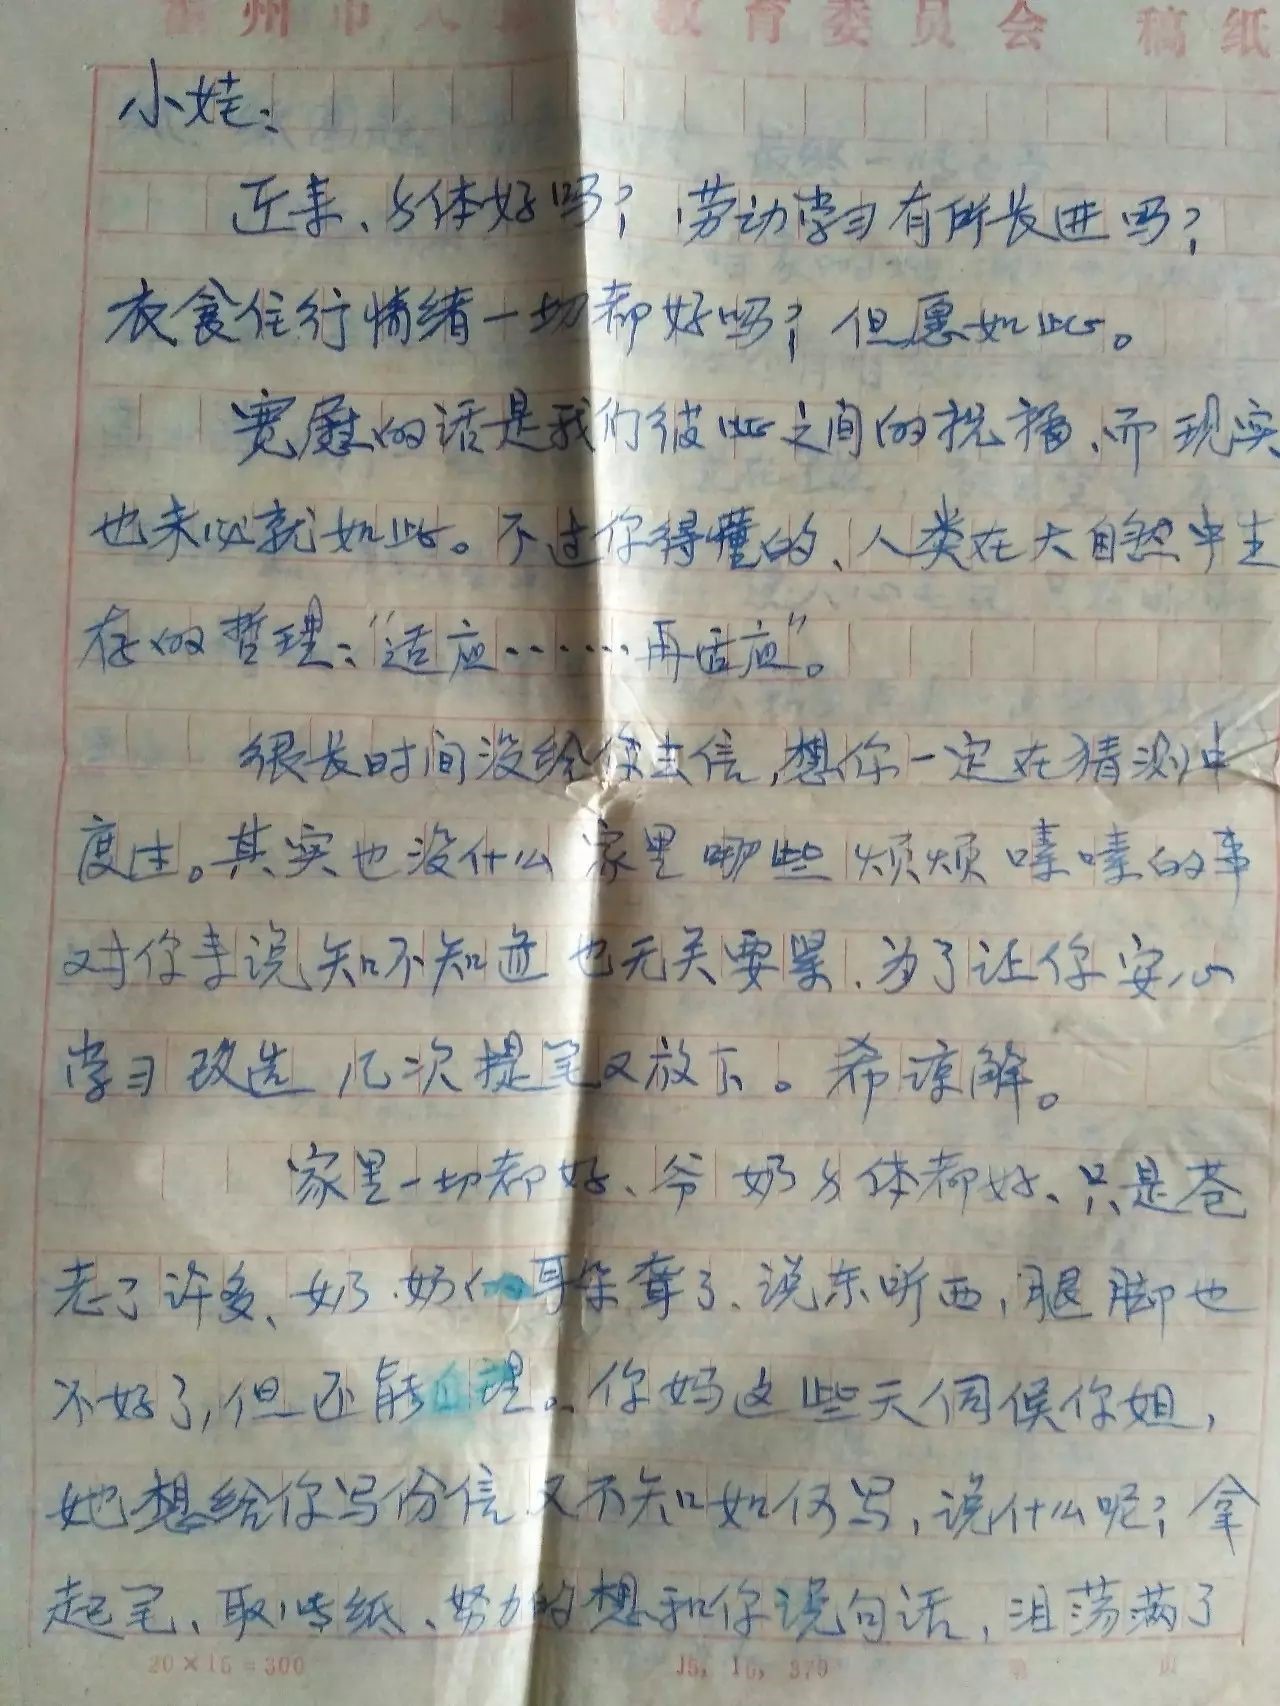 州市人 教育委员会 稿纸
小娃:
近来、身体好吗?劳动学习有所长进吗?
衣食住行情绪一切都好吗?但愿如此。
宽慰的话是我们彼此之间的祝福、而现实
也未必就如此。不过你得懂的、人类在大自然中生
存的哲理:“适应……再适应”。
很长时间没给你去信,想你一定在猜测中
度过。其实也没什么 家里哪些烦烦嗦嗦的事
对你来说知不知道也无关要紧、为了让你安心
学习改造 几次提笔又放下。希谅解。
家里一切都好、爷奶身体都好、只是苍
老了许多、奶.奶 耳朵聋了、说东听西,腿脚也
不好了,但还能 理。你妈这些天伺候你姐,
她想给你写份信又不知如何写,说什么呢?拿
起笔、取 纸、努力的想和你说句话,泪荡满了
20×15=300